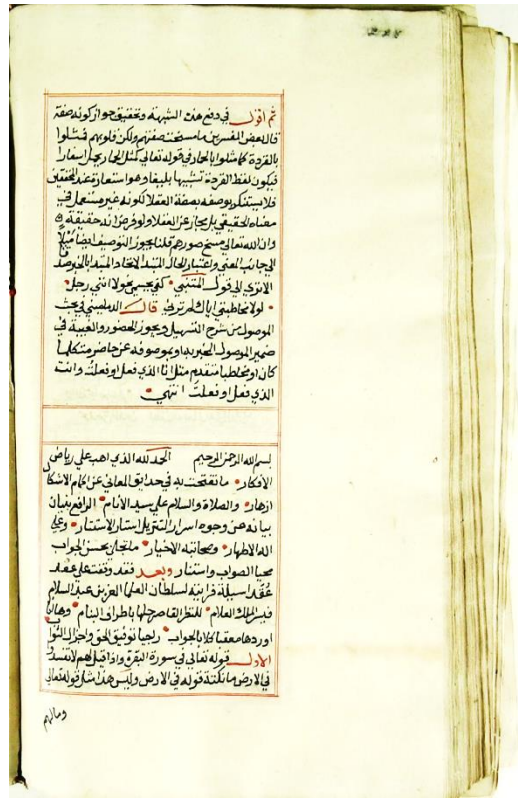 ثم اقول في دفع هذه الشبهة وتحقيق جواز كونه صفة
قال بعض المفسرين ما مسخت صفتهم ولكن قلوبهم فمثلوا
بالقردة كما مثلوا بالحمار في قوله تعالي كمثل الحمار يحمل اسفارا
فيكون لفظ القردة تشبيها بليغا وهو استعارة عند المحققين
فلا يستنكر بوصفه بصفة العقلا لكونه غير مستعمل في
معناه الحقيقي بل مجاز عن العقلا ولو فرض انه حقيقة
وان الله تعالي مسخ صورهم قلنا يجوز التوصيف ايضا ميلا
الي جانب المعني واعتبار الحال المبتدا لاتحاد المبتدا بالخبر
الا تري الي قول المتنبي كفي بجسمي نحولا انني رجل
لولا مخاطبتي اياك لم ترني قال الدماميني في بحث
الموصول من شرح التسهيل ويجوز الحضور والغيبة في
ضمير الموصول المخبر به او بموصوفه عن حاضر متكلما
كان او مخاطبا متقدم مثل انا الذي فعل او فعلت وانت
الذي فعل او فعلت انتهي
بسم الله الرحمن الرحيم الحمد لله الذي اهب علي رياض
الافكار ما تفتحت به في حدايق المعاني عن اكمام الاشكال
ازهار والصلاة والسلام علي سيد الانام الرافع ببنان
بيانه عن وجوه اسرار التنزيل استار الاستتار وعلي
اله الاطهار وصحابته الاخيار ما تجلي بحسن الجواب
محيا الصواب واستنار وبعد فقد وقفت علي عقد
عقد اسيلة قرانية لسلطان العلما العز بن عبد السلام
الملك العلام للنظر القاصر حلها باطراف البنام وها انا
اوردها معقبا كلا بالجواب راجيا توفيق الحق واجزال الثواب
الاول قوله تعالي في سورة البقرة واذا قيل لهم لا تفسدوا
في الارض ما نكتة قوله في الارض وليس هذا مثل قوله تعالي
وما لهم